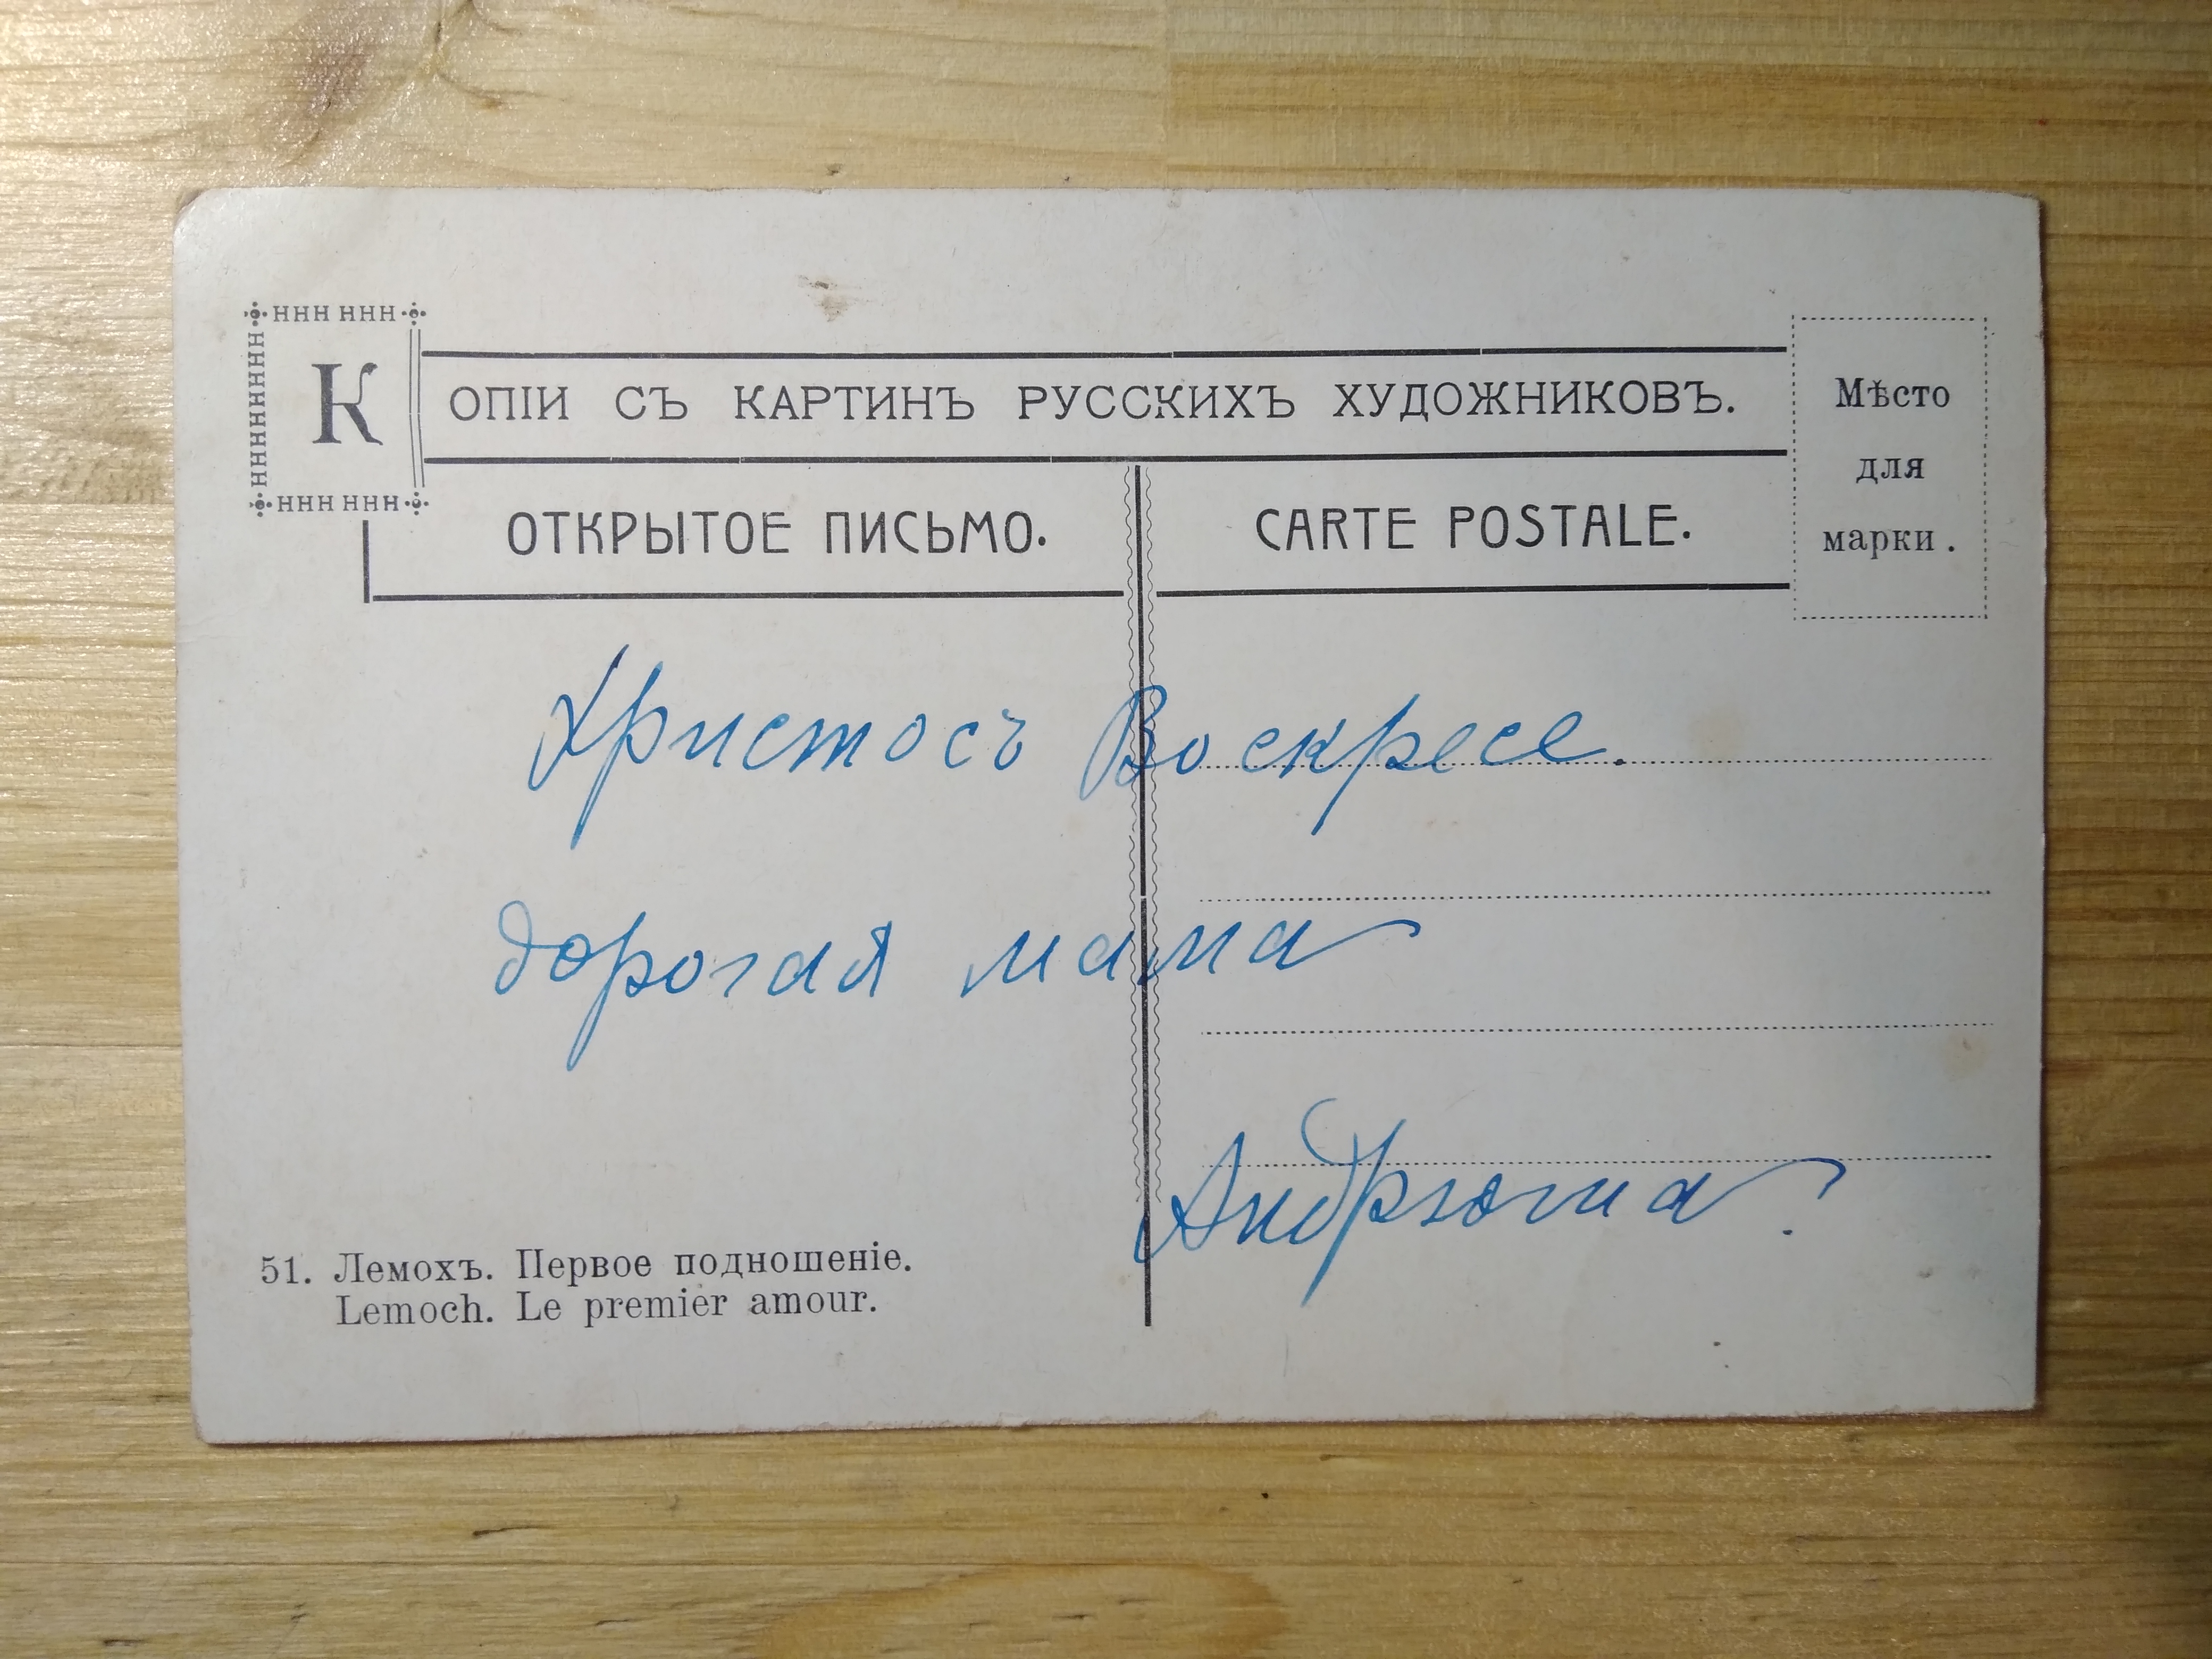 ННН ННН
КОПІИ СЪ КАРТИНЪ РУССКИХЪ ХУДОЖНИКОВЪ.
ННН ННН
ОТКРЫТОЕ ПИСЬМО.
CARTE POSTALE.
Мѣсто
для
марки.
Христосъ Воскресе.
дорогая мама
Андрюша.
51. Лемохъ. Первое подношеніе.
Lemoch. Le premier amour.